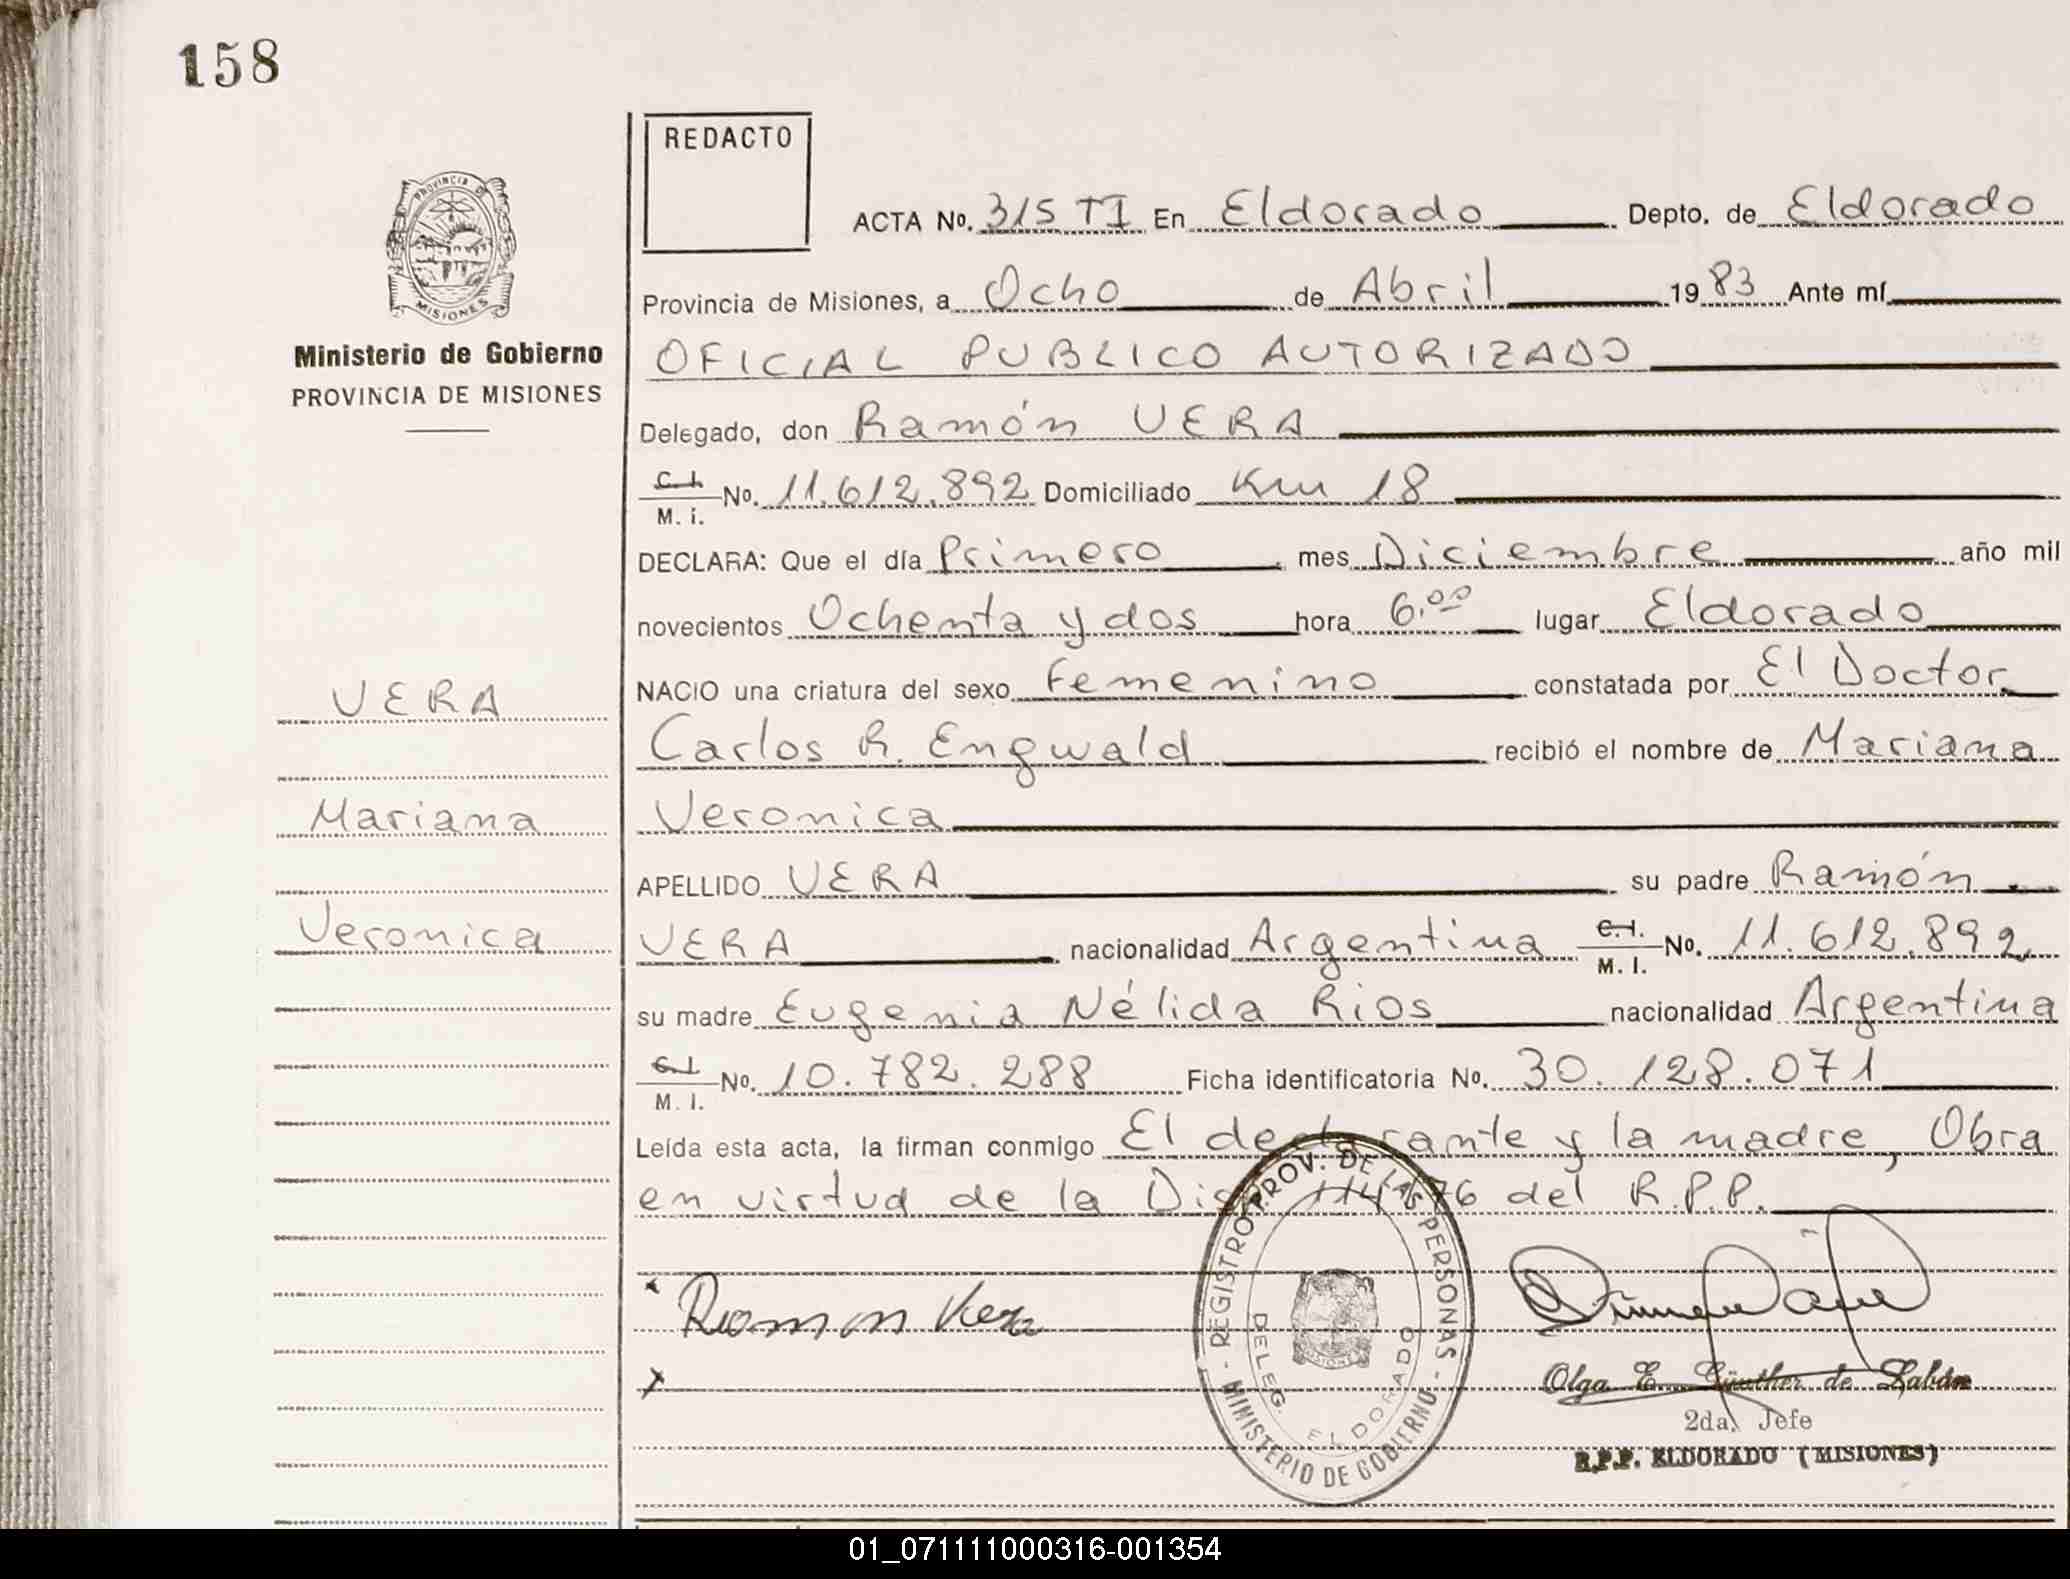 158
REDACTO
PROVINCIA DE
MISIONES
ACTA No. 315 TI En Eldorado Depto. de Eldorado
Provincia de Misiones, a Ocho de Abril 1983 Ante mí
Ministerio de Gobierno
PROVINCIA DE MISIONES
OFICIAL PUBLICO AUTORIZADO
Delegado, don Ramón VERA
C. I.
M. i. No. 11.612.892 Domiciliado Km 18
DECLARA: Que el día Primero mes Diciembre año mil
novecientos Ochenta y dos hora 6.00 lugar Eldorado
NACIO una criatura del sexo Femenino constatada por El Doctor
VERA
Carlos R. Engwald recibió el nombre de Mariana
Mariana
Veronica
APELLIDO VERA su padre Ramón
Veronica
VERA nacionalidad Argentina C. I.
M. I. No. 11.612.892
su madre Eugenia Nélida Rios nacionalidad Argentina
C. I.
M. I. No. 10.782.288 Ficha identificatoria No. 30.128.071
Leída esta acta, la firman conmigo El declarante y la madre, Obra
en virtud de la Disp. 114/76 del R.P.P.
Ramon Vera
x
REGISTRO PROV. DE LAS PERSONAS - MINISTERIO DE GOBIERNO -
DELEG. ELDORADO
MISIONES
Olga E. Günther de
2da. Jefe
R.P.P. ELDORADO (MISIONES)
01_071111000316-001354